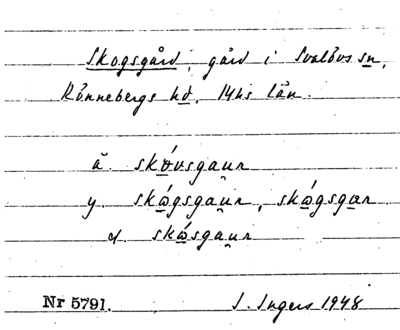 Skogsgård, gård i Svalövs sn,
Rönnebergs hd, Mhs län.
ä. skóvsgaun
y. skǫ́gsgaun, skǫ́gsgæn
d skǫ́sgaun
Nr 5791. I. Ingers 1948